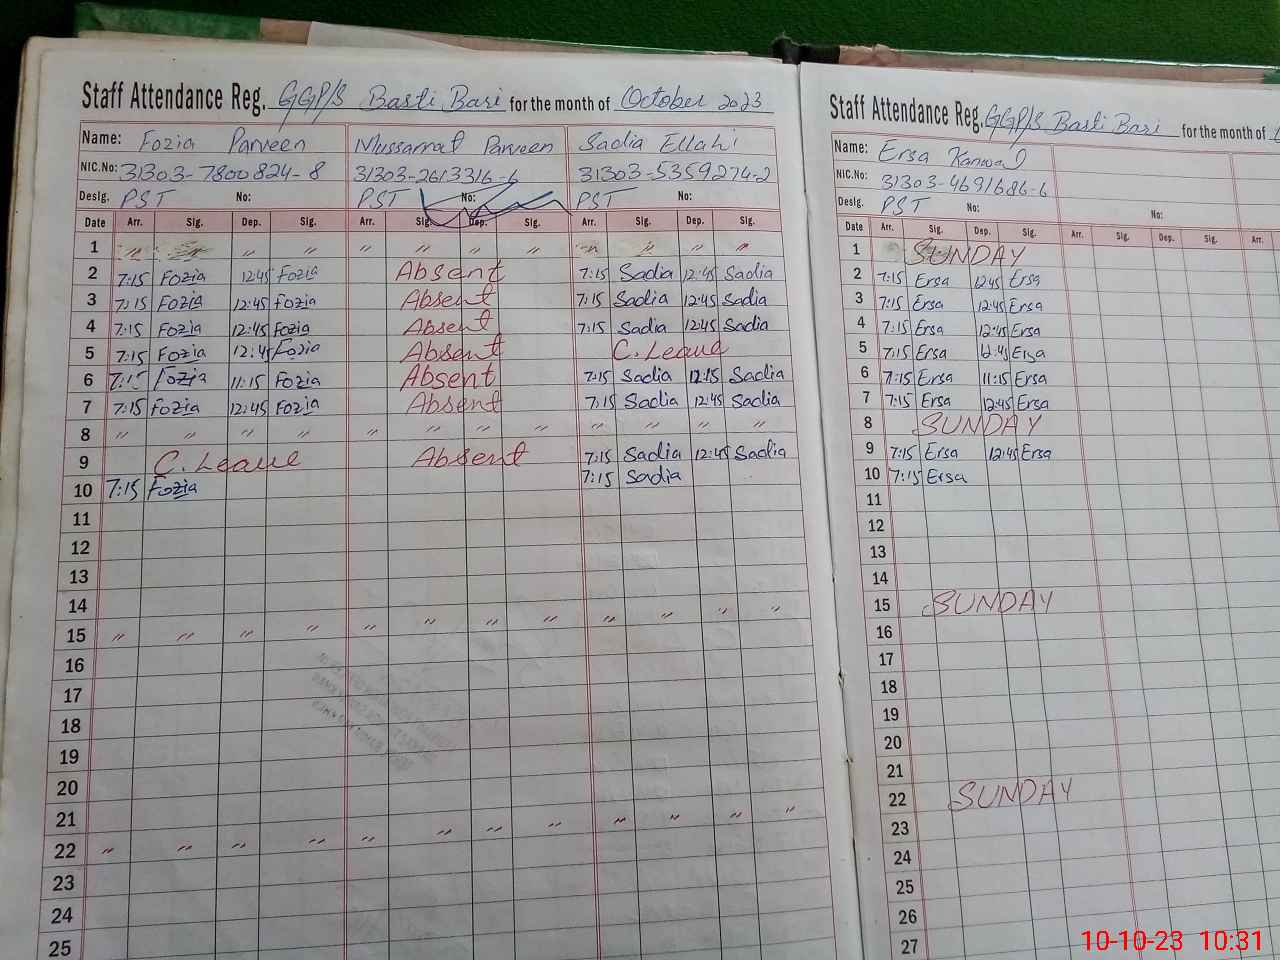 Staff Attendance Reg. GGP/S Basti Bari for the month of October 2023
Name: Fozia Parveen Mussarrat Parveen Sadia Ellahi
NIC.No: 31303-7800824-8 31303-2613316-6 31303-5359274-2
Desig. PST No: PST No: PST No:
Date Arr. Sig. Dep. Sig. Arr. Sig. Dep. Sig. Arr. Sig. Dep. Sig.
1 " " " " " " " " " " " "
2 7:15 Fozia 12:45 Fozia Absent 7:15 Sadia 12:45 Sadia
3 7:15 Fozia 12:45 Fozia Absent 7:15 Sadia 12:45 Sadia
4 7:15 Fozia 12:45 Fozia Absent 7:15 Sadia 12:45 Sadia
5 7:15 Fozia 12:45 Fozia Absent C.Leave
6 7:15 Fozia 11:15 Fozia Absent 7:15 Sadia 12:15 Sadia
7 7:15 Fozia 12:45 Fozia Absent 7:15 Sadia 12:45 Sadia
8 " " " " " " " " " " " "
9 C.Leave Absent 7:15 Sadia 12:45 Sadia
10 7:15 Fozia 7:15 Sadia
11
12
13
14
15 " " " " " " " " " " " "
16
17
18
19
20
21
22 " " " " " " " " " " " "
23
24
25
Staff Attendance Reg. GGP/S Basti Bari for the month of
Name: Ersa Kanwal
NIC.No: 31303-4691686-6
Desig. PST No: No:
Date Arr. Sig. Dep. Sig. Arr. Sig. Dep. Sig. Arr.
1 SUNDAY
2 7:15 Ersa 12:45 Ersa
3 7:15 Ersa 12:45 Ersa
4 7:15 Ersa 12:45 Ersa
5 7:15 Ersa 12:45 Ersa
6 7:15 Ersa 11:15 Ersa
7 7:15 Ersa 12:45 Ersa
8 SUNDAY
9 7:15 Ersa 12:45 Ersa
10 7:15 Ersa
11
12
13
14
15 SUNDAY
16
17
18
19
20
21
22 SUNDAY
23
24
25
26
27
10-10-23 10:31